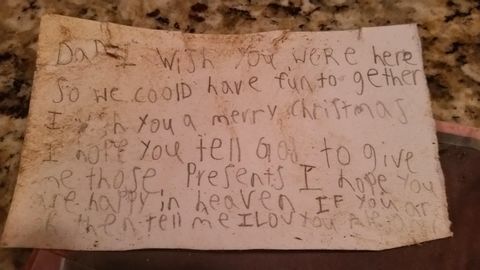 Dad I wish you were here
so we coold have fun to gether
I wish you a merry christmas
I hope you tell God to give
me those Presents I hope you
are happy in heaven IF you ar
then tell me I Lov you